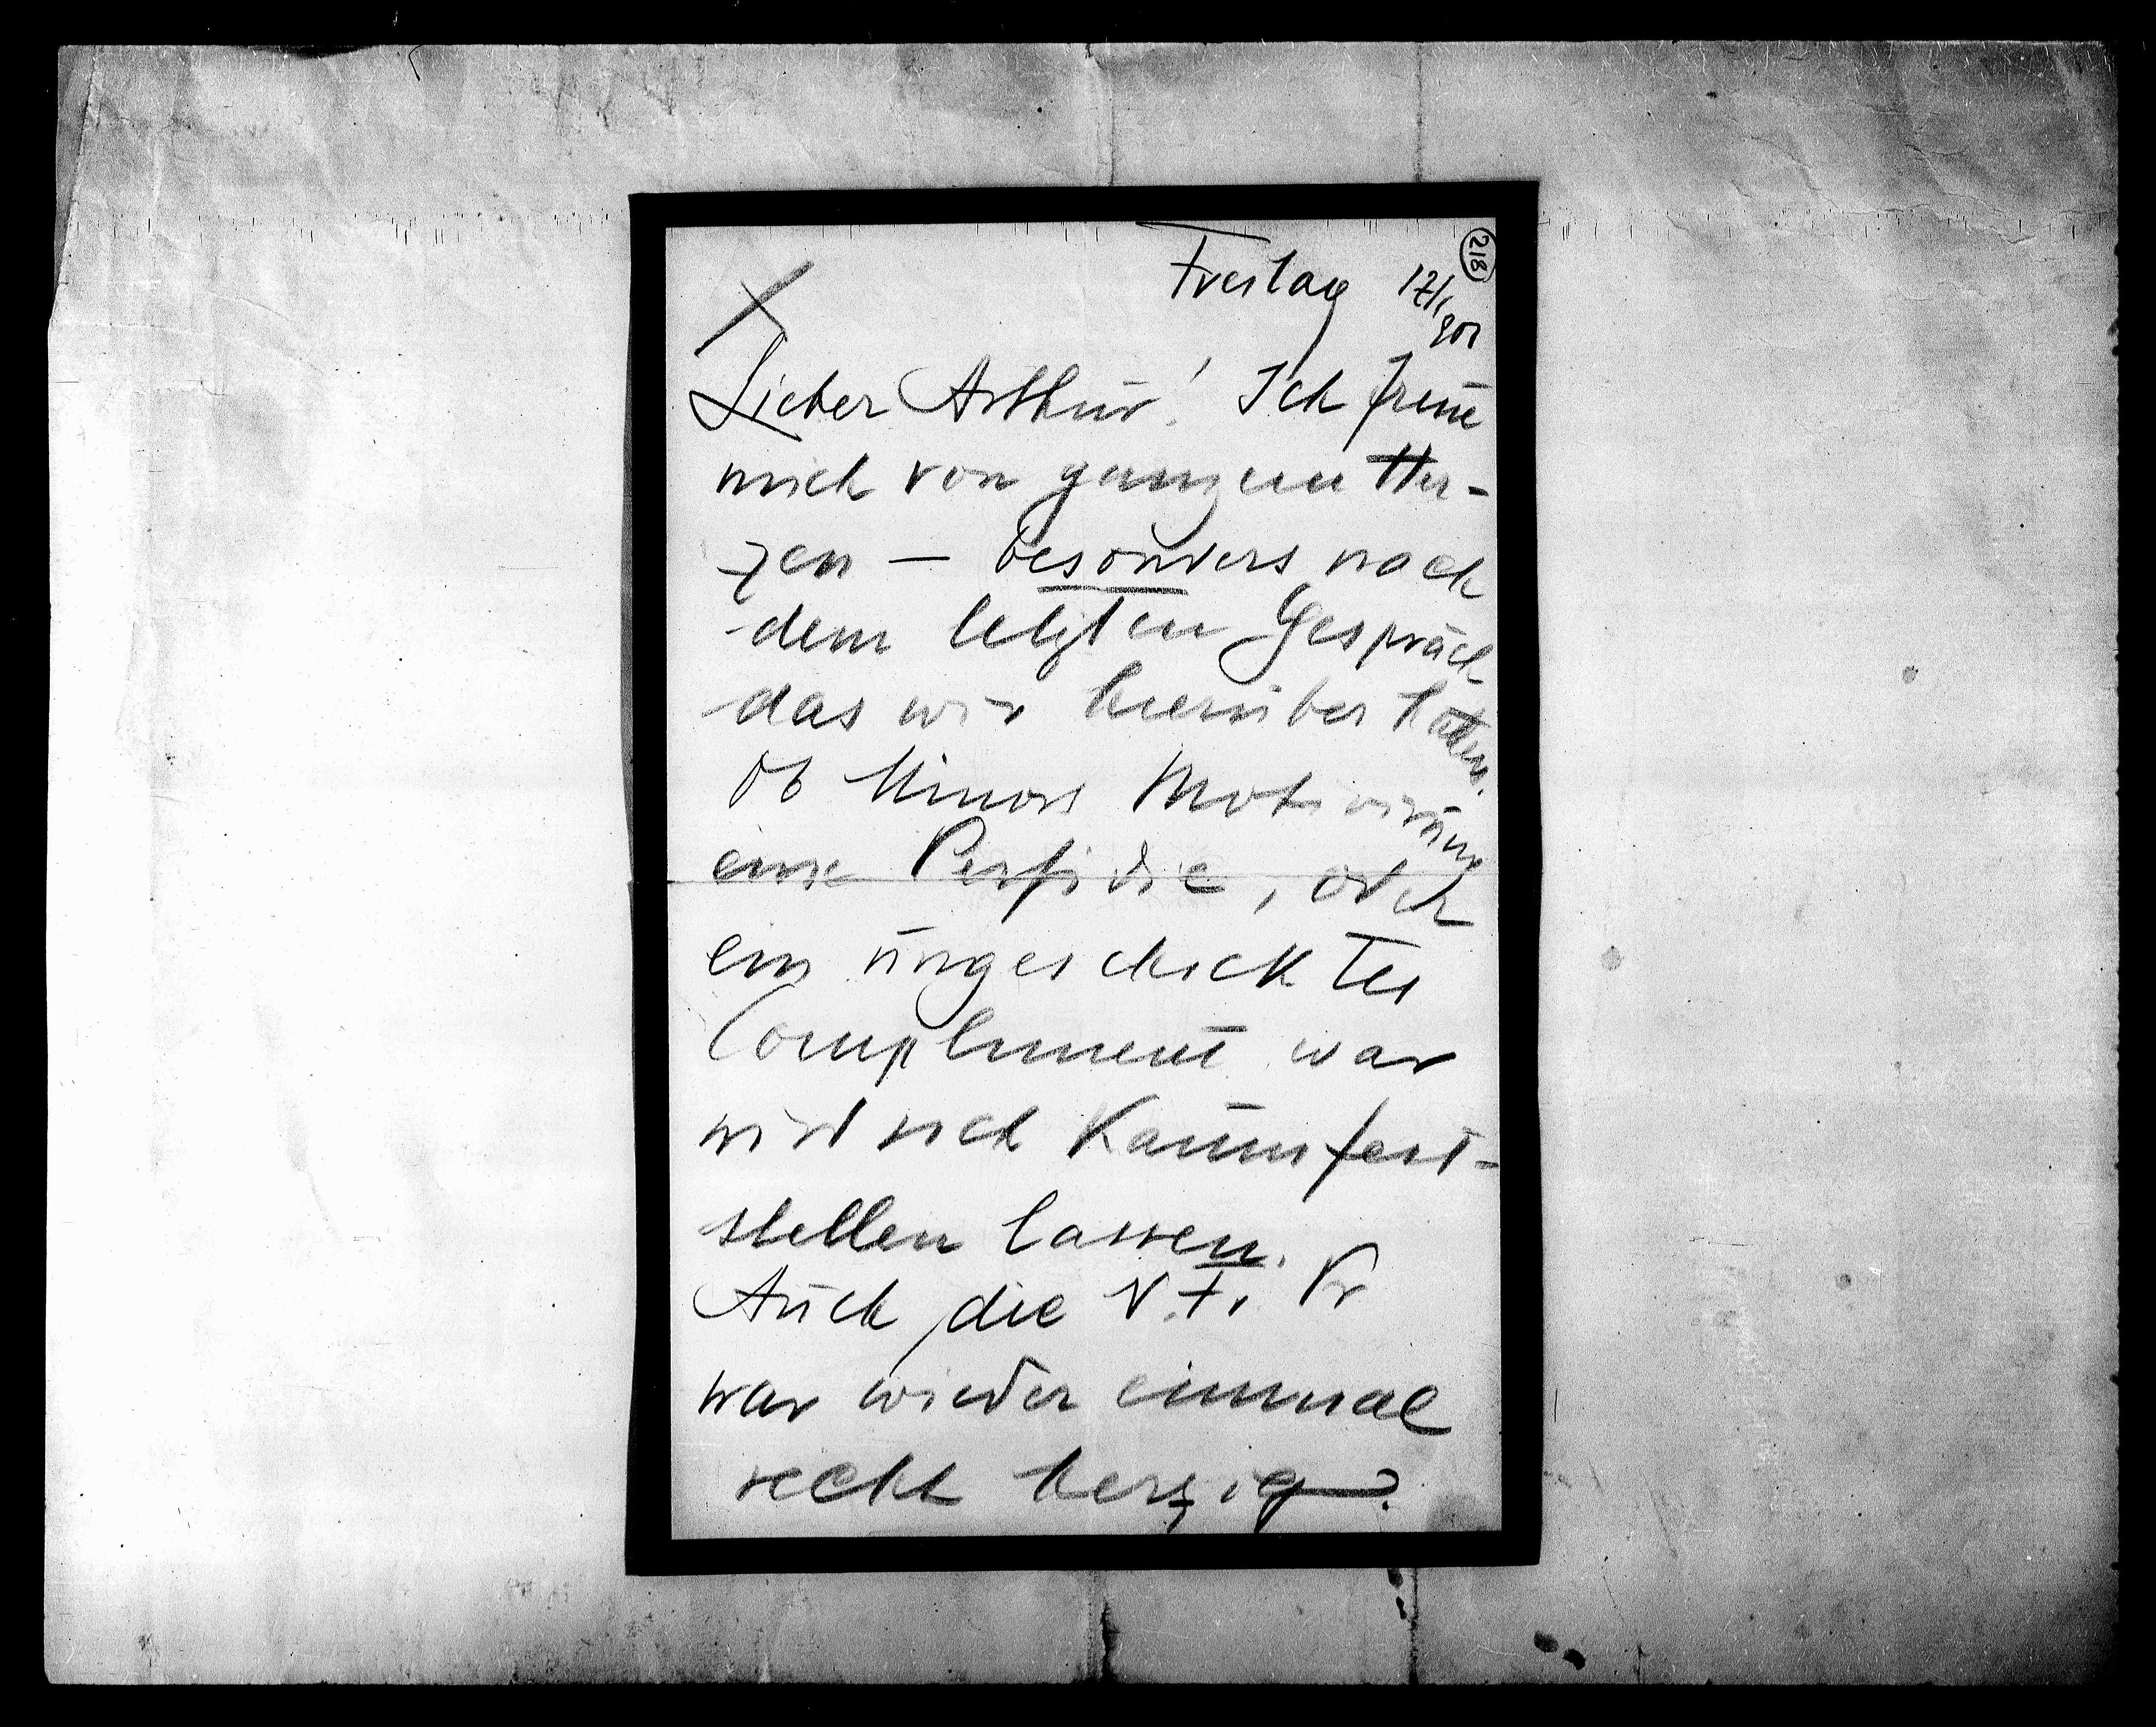 218
Freitag 17/1
908
Lieber Arthur! Ich freue
mich von ganzem Her-
zen – besonders nach
dem letzten Gespräch
das wir hierüber hatten.
Ob Minors Motivirung
eine Perfidie, oder
ein ungeschicktes
Compliment war
wird sich kaum fest-
stellen lassen.
Auch die N. Fr. Pr
war wieder einmal
recht herzig.